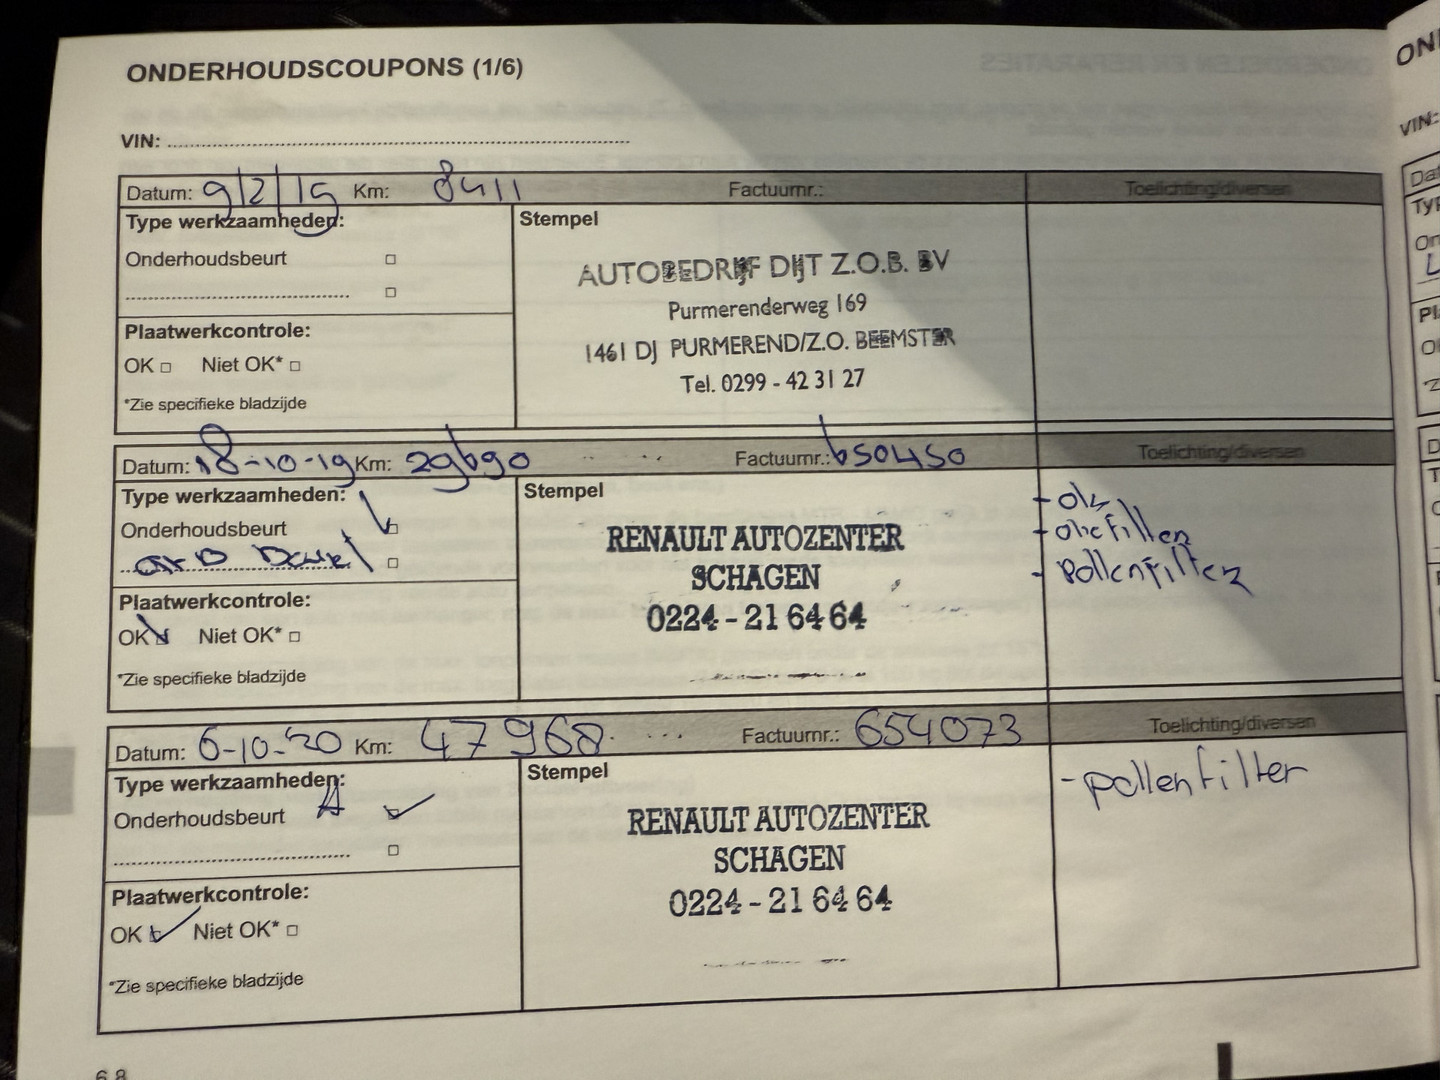 ONDERHOUDSCOUPONS (1/6)
VIN:
Datum: 9/2/19 Km: 8411 Factuurnr.: Toelichting/diversen
Type werkzaamheden:
Stempel
Onderhoudsbeurt
AUTOBEDRIJF DIJT Z.O.B. BV
Purmerenderweg 169
1461 DJ PURMEREND/Z.O. BEEMSTER
Tel. 0299 - 42 31 27
Plaatwerkcontrole:
OK Niet OK*
*Zie specifieke bladzijde
Datum: 18-10-19 Km: 29690 Factuurnr.: 650450 Toelichting/diversen
Type werkzaamheden:
Stempel
Onderhoudsbeurt
RENAULT AUTOZENTER
SCHAGEN
0224 - 21 64 64
- olie
- oliefilter
- pollenfilter
Plaatwerkcontrole:
OK Niet OK*
*Zie specifieke bladzijde
Datum: 6-10-'20 Km: 47968 Factuurnr.: 654073 Toelichting/diversen
Type werkzaamheden:
Stempel
Onderhoudsbeurt A
RENAULT AUTOZENTER
SCHAGEN
0224 - 21 64 64
- pollenfilter
Plaatwerkcontrole:
OK Niet OK*
*Zie specifieke bladzijde
6.8
ON
VIN: